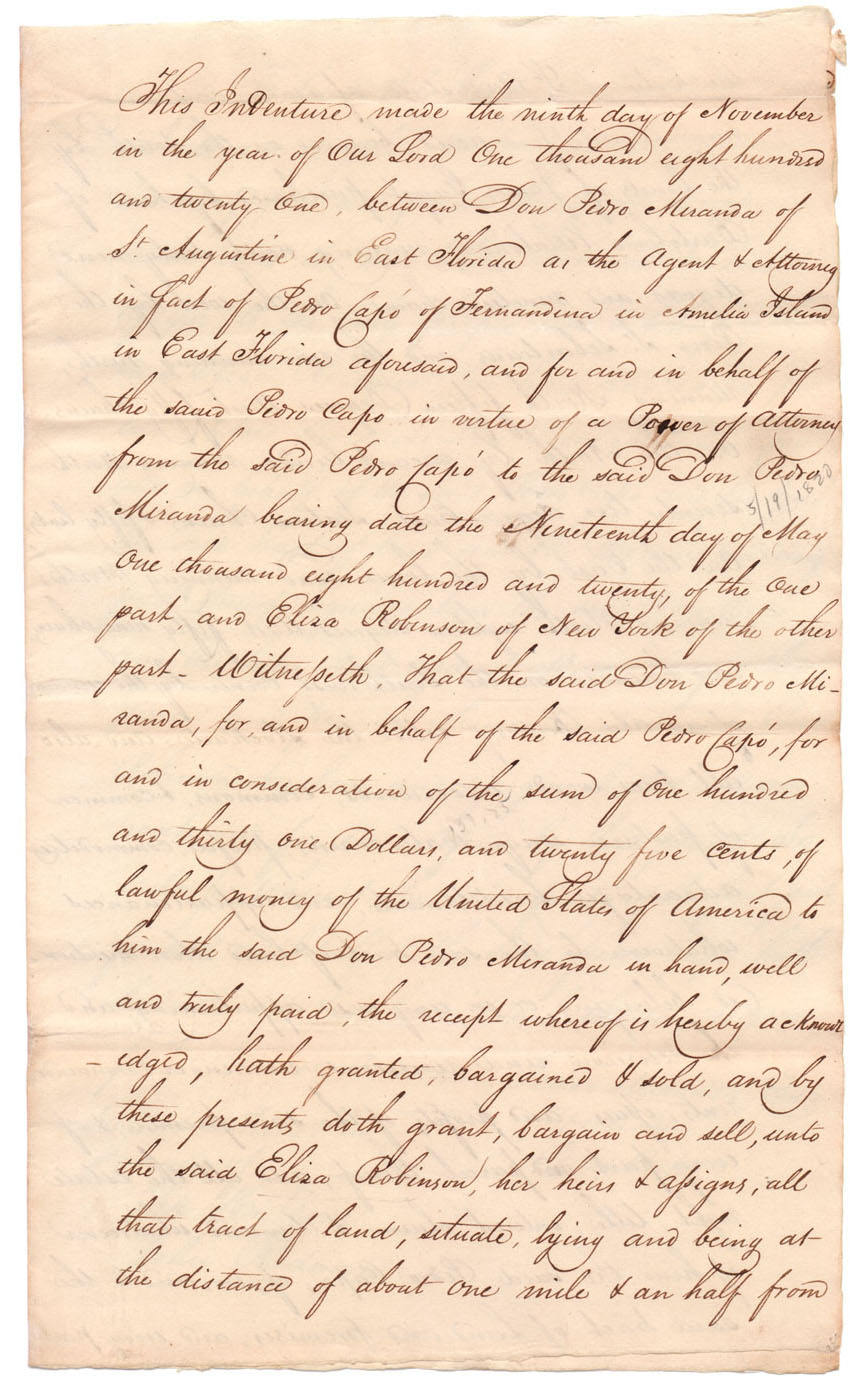 This Indenture made the ninth day of November
in the year of Our Lord One thousand eight hundred
and twenty One, between Don Pedro Miranda of
St. Augustine in East Florida as the Agent & Attorney
in fact of Pedro Capó of Fernandina in Amelia Island
in East Florida aforesaid, and for and in behalf of
the sauid Pedro Capo in virtue of a Power of Attorney
from the said Pedro Capó to the said Don Pedro
5/19/1820
Miranda bearing date the Nineteenth day of May
One thousand eight hundred and twenty, of the One
part, and Eliza Robinson of New York of the other
part - Witnesseth, That the said Don Pedro Mi-
randa, for, and in behalf of the said Pedro Capó, for
and in consideration of the sum of One hundred
131.25
and thirty one Dollars, and twenty five cents, of
lawful money of the United States of America to
him the said Don Pedro Miranda in hand, well
and truly paid, the receipt whereof is hereby acknowl
-edged, hath granted, bargained & sold, and by
these presents doth grant, bargain and sell, unto
the said Eliza Robinson, her heirs & assigns, all
that tract of land, situate, lying and being at
the distance of about one mile & an half from